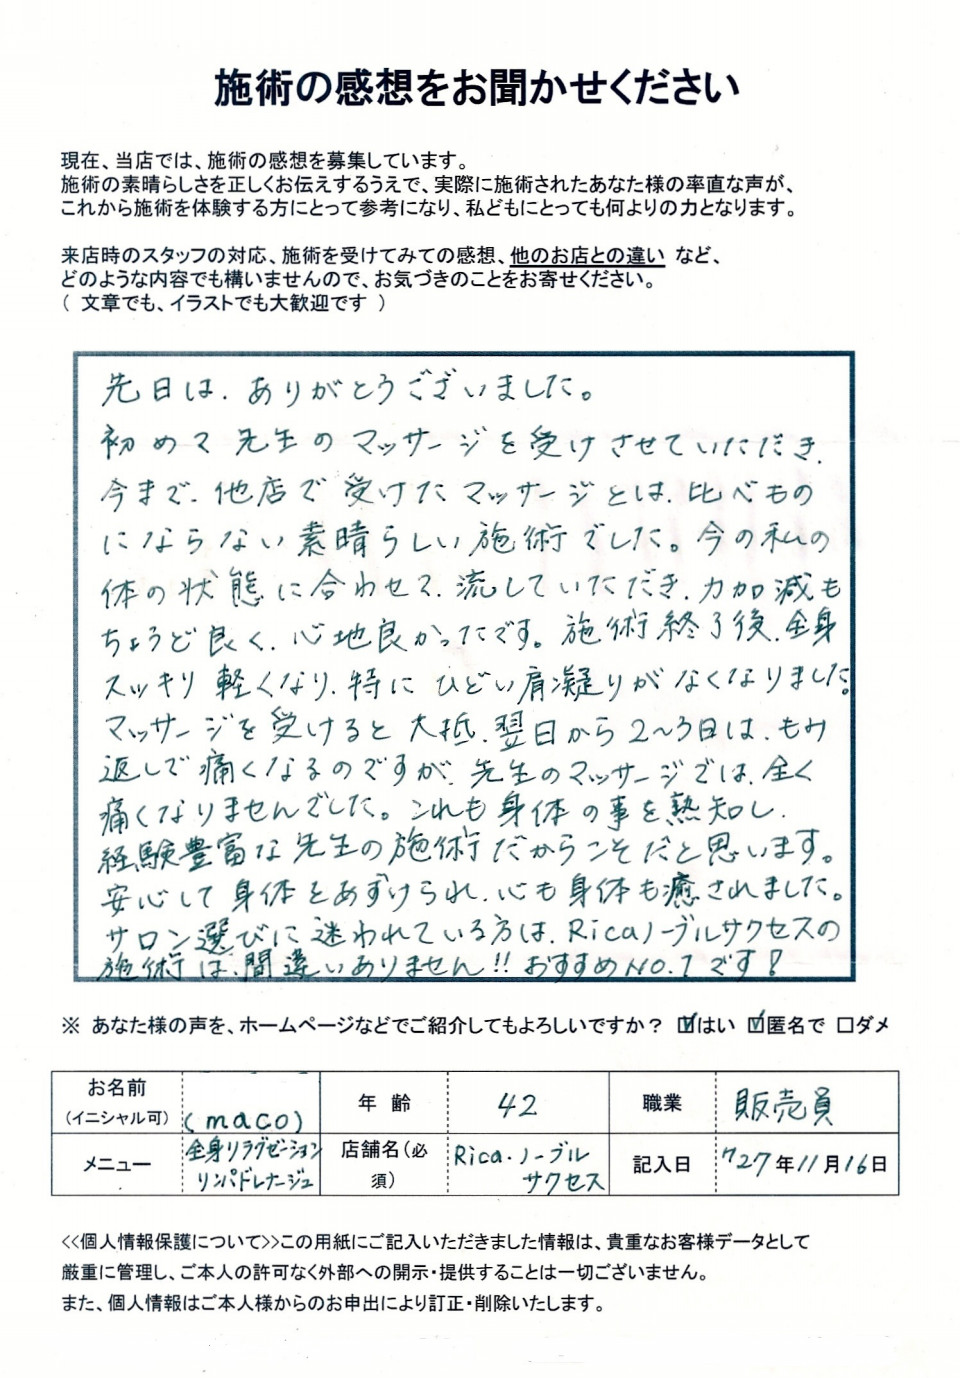 施術の感想をお聞かせください
現在、当店では、施術の感想を募集しています。
施術の素晴らしさを正しくお伝えするうえで、実際に施術されたあなた様の率直な声が、
これから施術を体験する方にとって参考になり、私どもにとっても何よりの力となります。
来店時のスタッフの対応、施術を受けてみての感想、他のお店との違い など、
どのような内容でも構いませんので、お気づきのことをお寄せください。
（ 文章でも、イラストでも大歓迎です ）
先日は、ありがとうございました。
初めて先生のマッサージを受けさせていただき、
今まで、他店で受けたマッサージとは、比べもの
にならない素晴らしい施術でした。今の私の
体の状態に合わせて、流していただき、力加減も
ちょうど良く、心地良かったです。施術終了後、全身
スッキリ軽くなり、特にひどい肩凝りがなくなりました。
マッサージを受けると大抵、翌日から2〜3日は、もみ
返しで痛くなるのですが、先生のマッサージでは、全く
痛くなりませんでした。これも身体の事を熟知し、
経験豊富な先生の施術だからこそだと思います。
安心して身体をあずけられ、心も身体も癒されました。
サロン選びに迷われている方は、Ricaノーブルサクセスの
施術は、間違いありません!! おすすめNO.1です!
※ あなた様の声を、ホームページなどでご紹介してもよろしいですか？ ☑はい ☑匿名で □ダメ
お名前（イニシャル可） (maco) 年 齢 42 職業 販売員
メニュー 全身リラグゼーション リンパドレナージュ 店舗名（必須） Rica・ノーブルサクセス 記入日 H27年11月16日
<<個人情報保護について>>この用紙にご記入いただきました情報は、貴重なお客様データとして
厳重に管理し、ご本人の許可なく外部への開示・提供することは一切ございません。
また、個人情報はご本人様からのお申出により訂正・削除いたします。